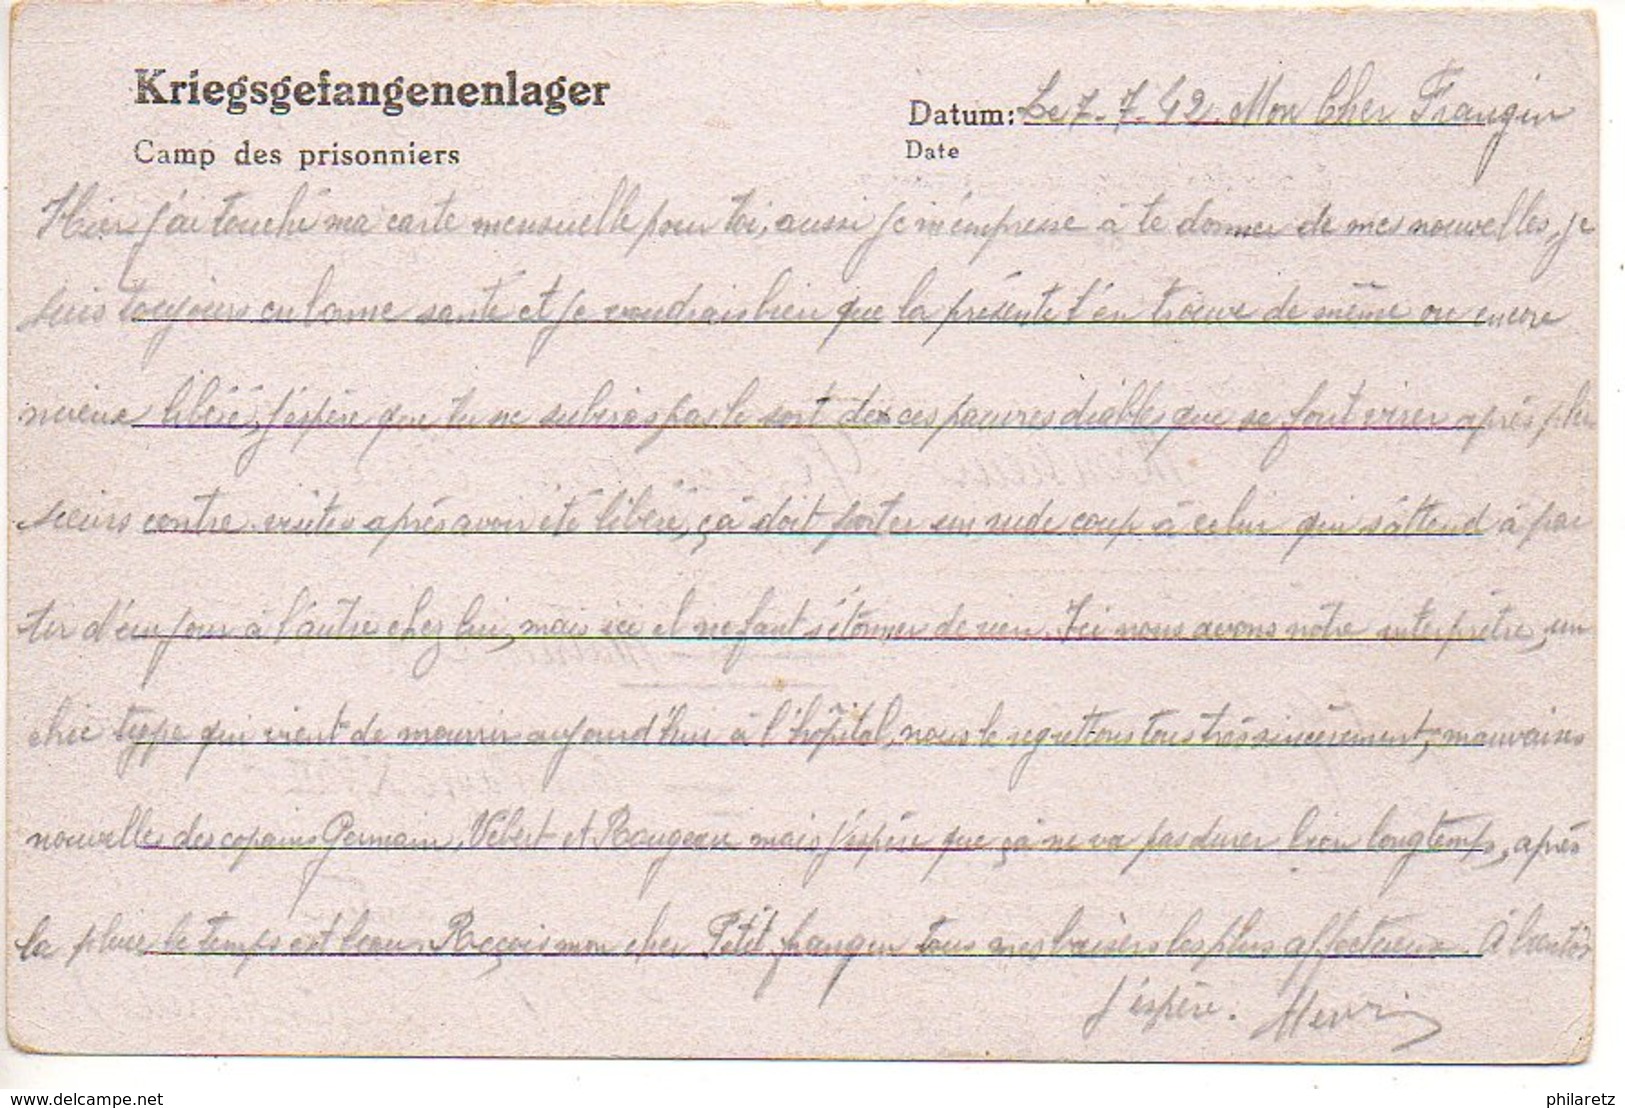 Kriegsgefangenenlager
Camp des prisonniers
Datum: Le 7. 7. 42. Mon Cher Frangin
Date
Hier j'ai touché ma carte mensuelle pour toi, aussi je m'empresse à te donner de mes nouvelles, je
suis toujours en bonne santé et je voudrais bien que la présente t'en trouve de même ou encore
mieux libéré, j'espère que tu ne subiras pas le sort de ces pauvres diables que se font virer après plu
sieurs contre visites après avoir été libéré, çà doit porter un rude coup à celui qui s'attend à par
tir d'un jour à l'autre chez lui, mais ici il ne faut s'étonner de rien. Ici nous avons notre interprètre, un
chic type qui vient de mourrir aujourd'hui à l'hôpital, nous le regrettons tous très sincèrement, mauvaises
nouvelles des copains Germain, Vébert et Rougeau mais j'espère que çà ne va pas durer bien longtemps, après
la pluie le temps est beau. Reçois mon cher Petit frangin tous mes baisers les plus affectueux. A bientôt
j'espère. Henri
www.delcampe.net
philaretz